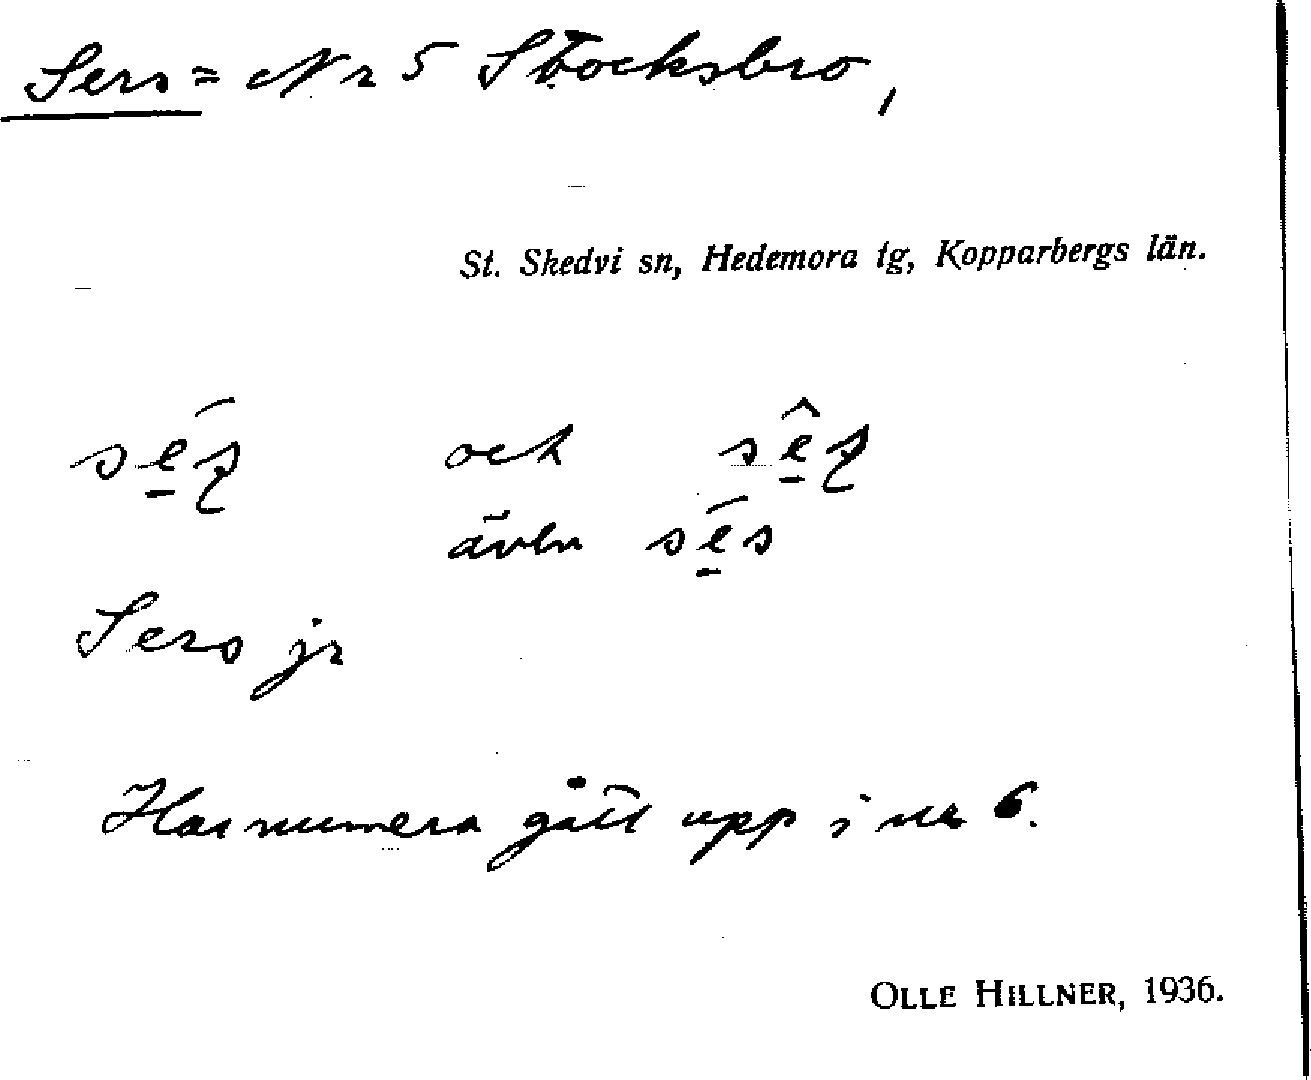 Sers = Nr 5 Stocksbro,
St. Skedvi sn, Hedemora tg, Kopparbergs län.
och
även
Sers jr
Har numera gått upp i nr 6.
OLLE HILLNER, 1936.